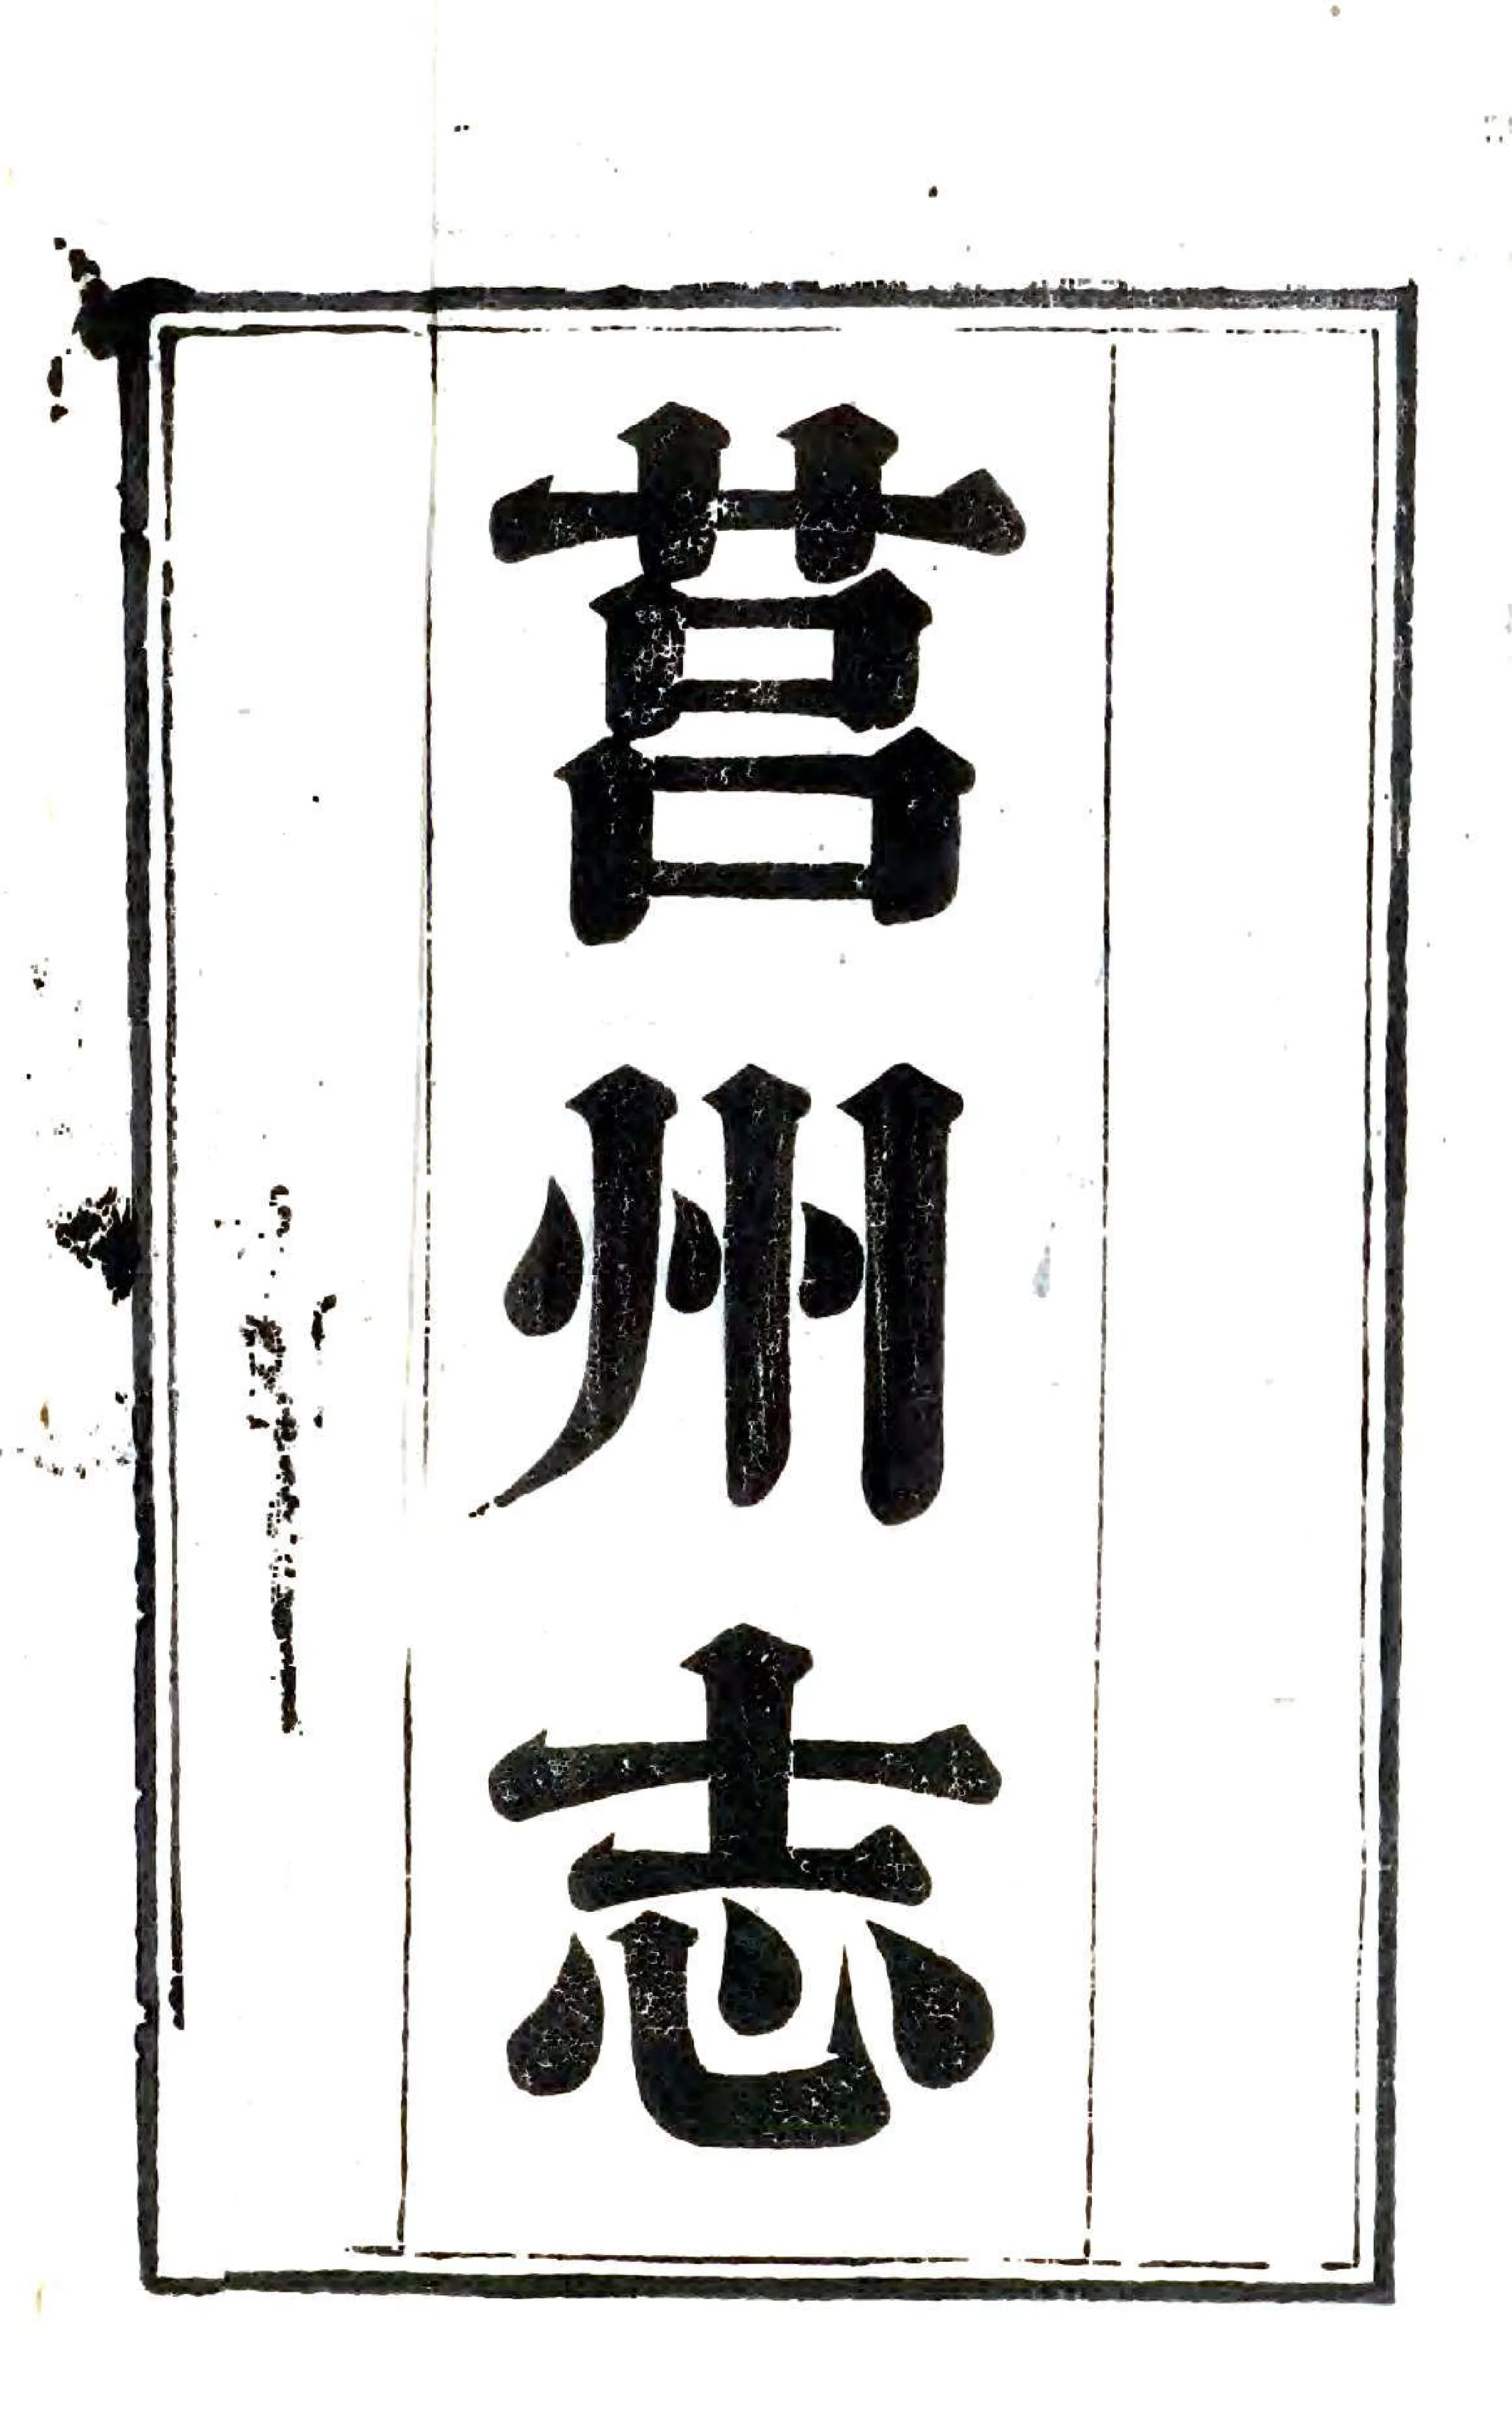 莒州志